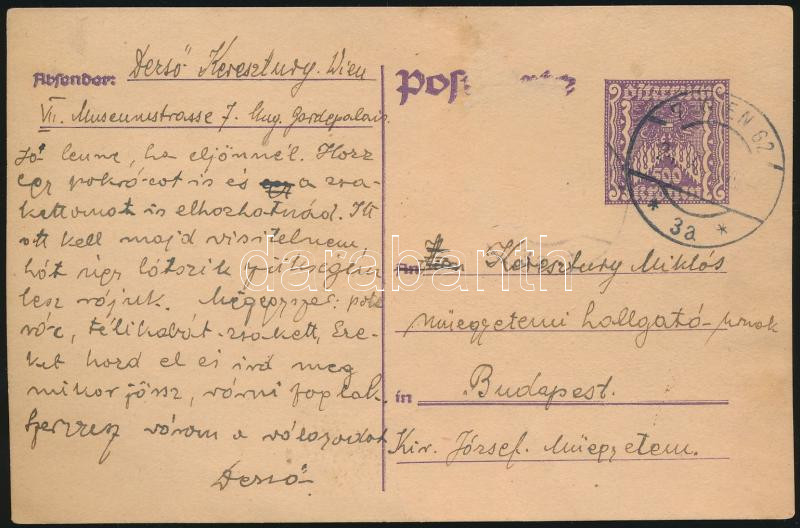 Absender: Dezső Keresztury. Wien
VII. Museumstrasse 7. Ung. Gardepalais.
Jó lenne, ha eljönnél. Hozz
egy pokrócot is és a zsa-
kettomat is elhozhatnád. Itt
ott kell majd visitelnem
hát úgy látszik szükségem
lesz rájuk. Mégegyszer: pok
róc, télikabát zsakett, Eze-
ket hozd el és ird meg
mikor jössz, várni foglak.
Szerezz várom a válaszodat
Dezső
Post
Österreich
500
Kronen
WIEN 62
* 3a *
An Keresztury Miklós
műegyetemi hallgató-urnak
in Budapest.
Kir. József. Műegyetem.
darabanth